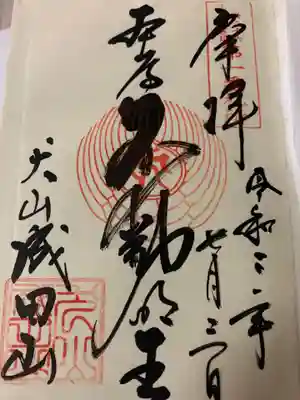 奉拝
令和二年
七月二日
本尊不動明王
犬山成田山